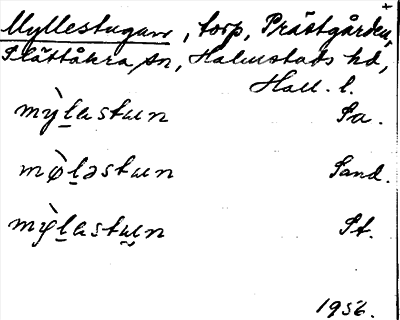 Myllestugan, torp, Prästgården,
Slättåkra sn, Halmstads hd,
Hall. l.
mỳḻastɯn Sa.
mø̀ḻəstɯn Sand.
mỳḻastɯ̰n St.
1956.